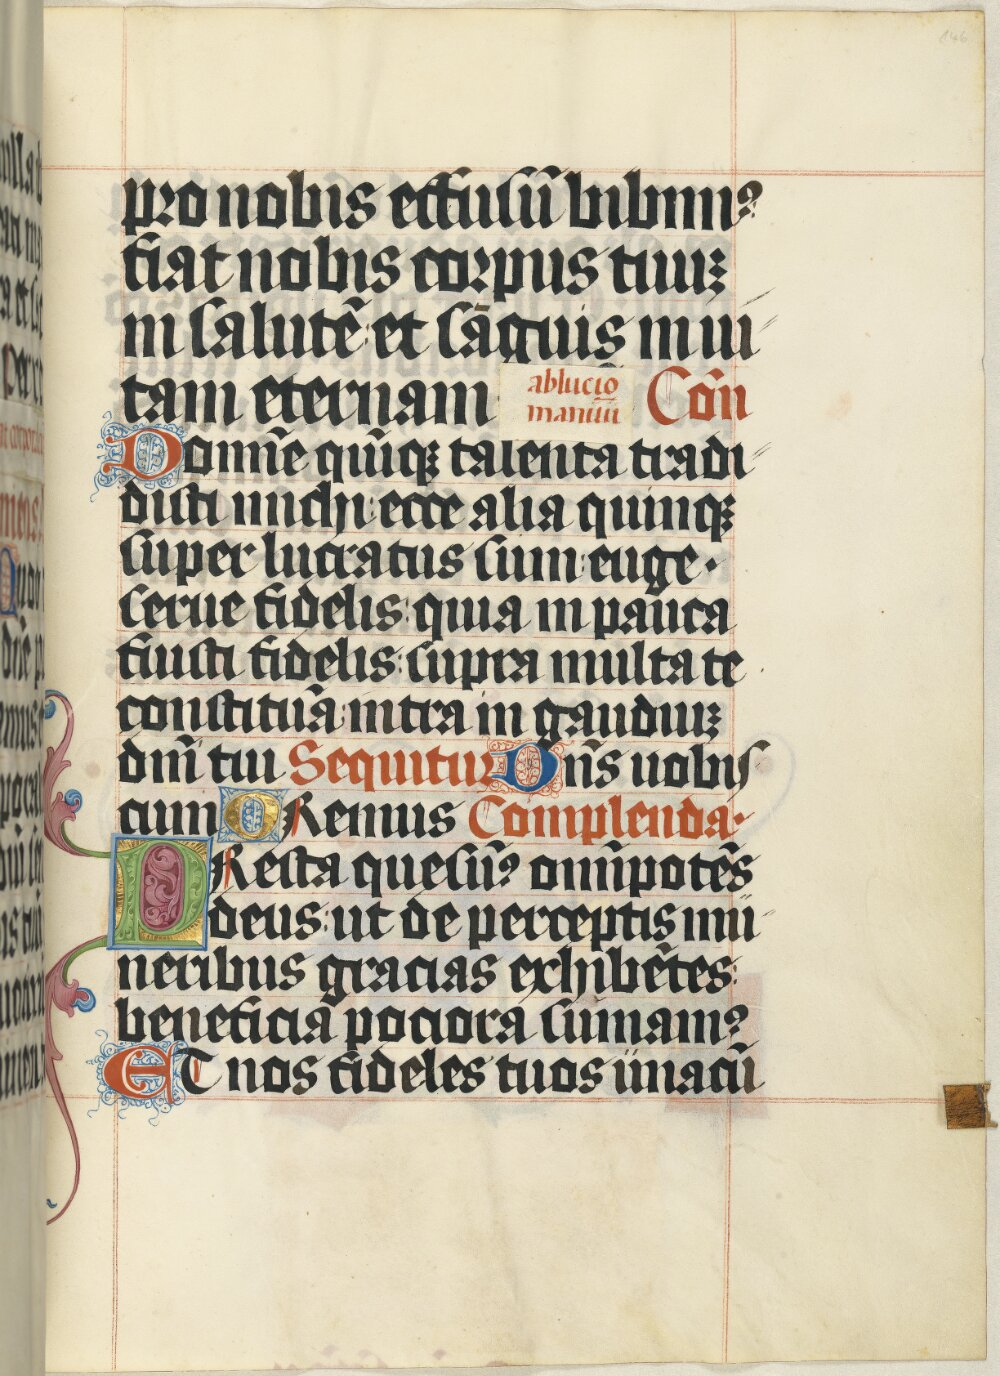 pro nobis effusū bibim⁹
fiat nobis corpus tuuꝫ
in salutē et sāguis in ui
tam eternam ablucio manuū Cōn
Domīe quīqꝫ talenta tradi
disti michi: ecce alia quinqꝫ
super lucratus sum: euge.
serue fidelis: quia in pauca
fuisti fidelis: supra multa te
constituā: intra in gaudiuꝫ
dn̄i tui Sequitur Dn̄s uobis
cum ORemus Complenda.
PResta quesum⁹ omīpotēs
deus: ut de perceptis mu
neribus gracias exhibētes:
beneficia pociora sumam⁹
ET nos fideles tuos unacū
146